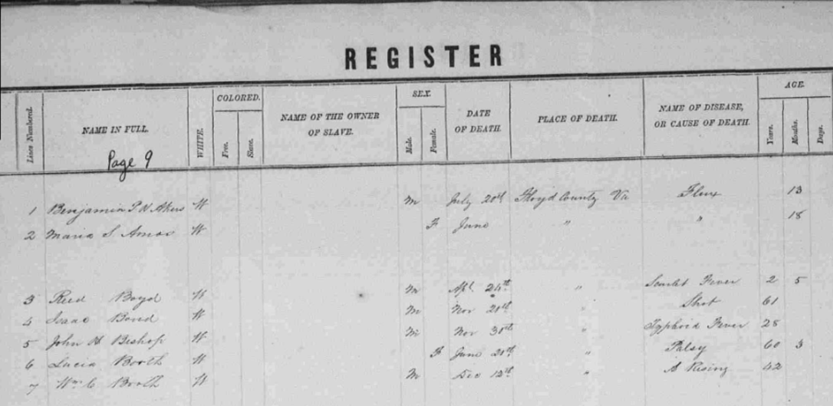 REGISTER
Lines Numbered. NAME IN FULL. WHITE. COLORED. Free. Slave. NAME OF THE OWNER OF SLAVE. SEX. Male. Female. DATE OF DEATH. PLACE OF DEATH. NAME OF DISEASE, OR CAUSE OF DEATH. AGE. Years. Months. Days.
Page 9
1 Benjamin P H Akers W M July 20th Floyd County Va Flux 13
2 Maria S Amos W F June " " 18
3 Reed Boyd W M Apl 24th " Scarlet Fever 2 5
4 Isaac Bond W M Nov 20th " Shot 61
5 John H Bishop W M Nov 30th " Typhoid Fever 28
6 Lucia Booth W F June 20th " Palsy 60 3
7 Wm C Booth W M Dec 12th " A Rising 42